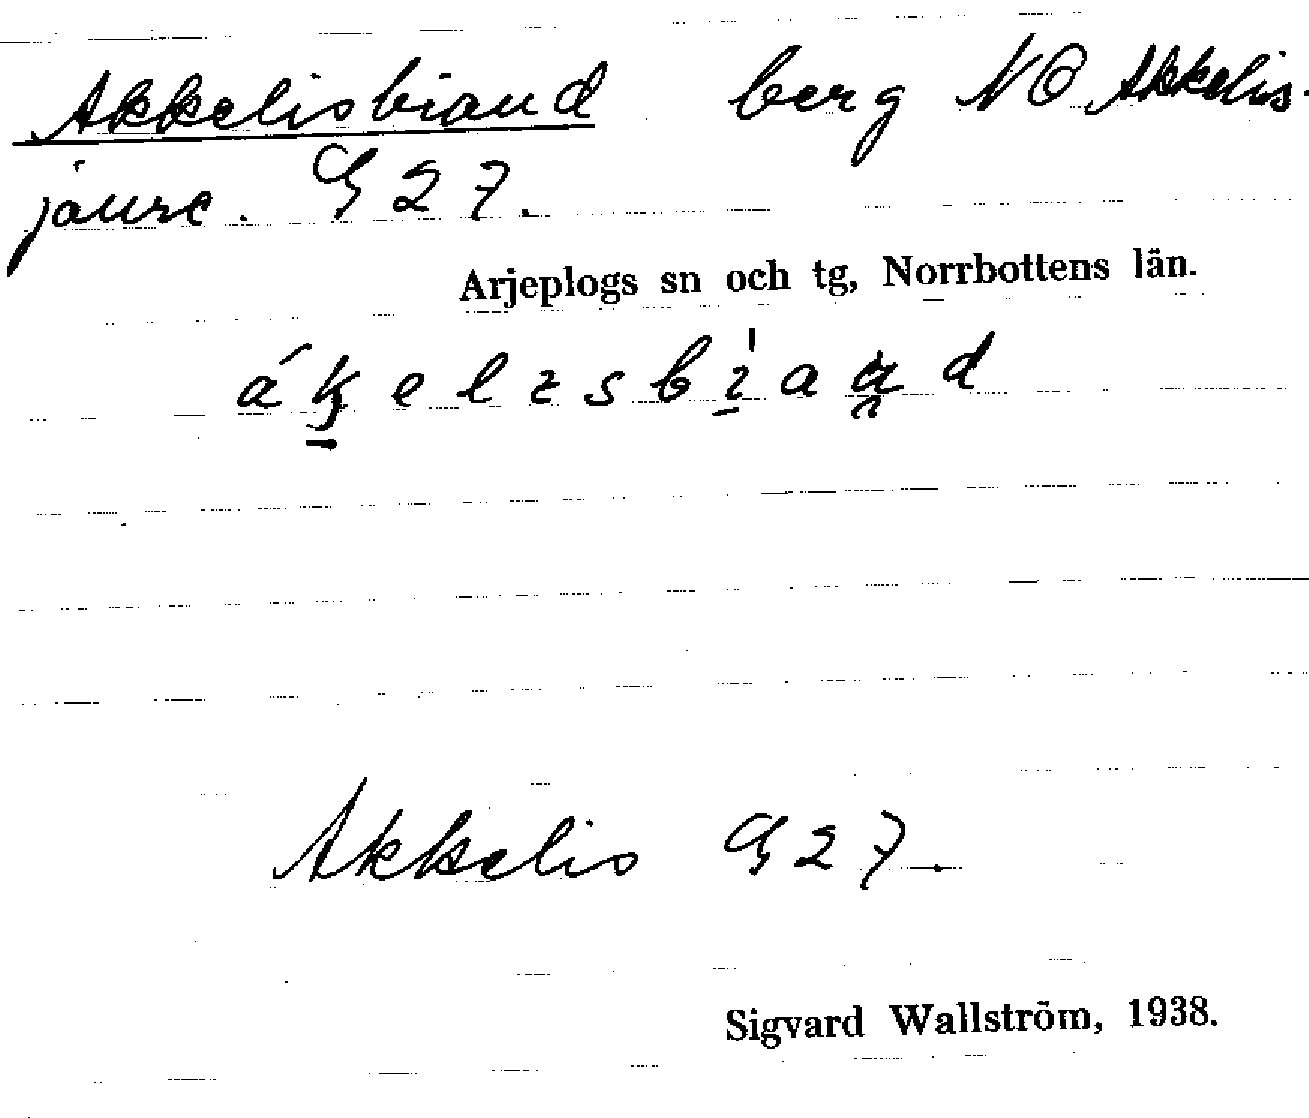 Akkelisbiaud berg NO Akkelis-
jaure. G 27.
Arjeplogs sn och tg, Norrbottens län.
Akkelis G 27.
Sigvard Wallström, 1938.